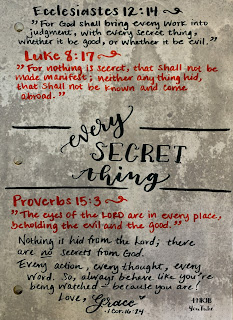 Ecclesiastes 12:14
"For God shall bring every work into
judgment, with every secret thing,
whether it be good, or whether it be evil."
Luke 8:17
"For nothing is secret, that shall not be
made manifest; neither any thing hid,
that shall not be known and come
abroad."
every
SECRET
thing
Proverbs 15:3
"The eyes of the LORD are in every place,
beholding the evil and the good."
Nothing is hid from the Lord; there
are no secrets from God.
Every action, every thought, every
word. So, always behave like you're
being watched – because you are!
Love, Grace
YouTube